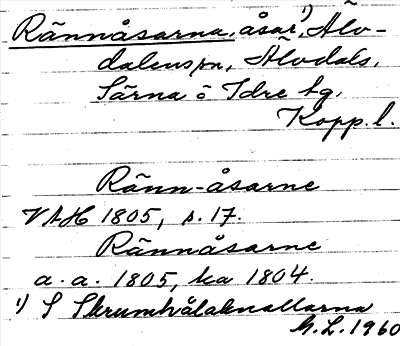 Rännåsarna, åsar,¹) Älv-
dalens pn, Älvdals,
Särna o Idre tg,
Kopp. l.
Ränn-åsarne
VAH 1805, s. 17.
Rännåsarne
a. a. 1805, ka 1804.
¹) S Skrumhålaknallarna
G. L. 1960